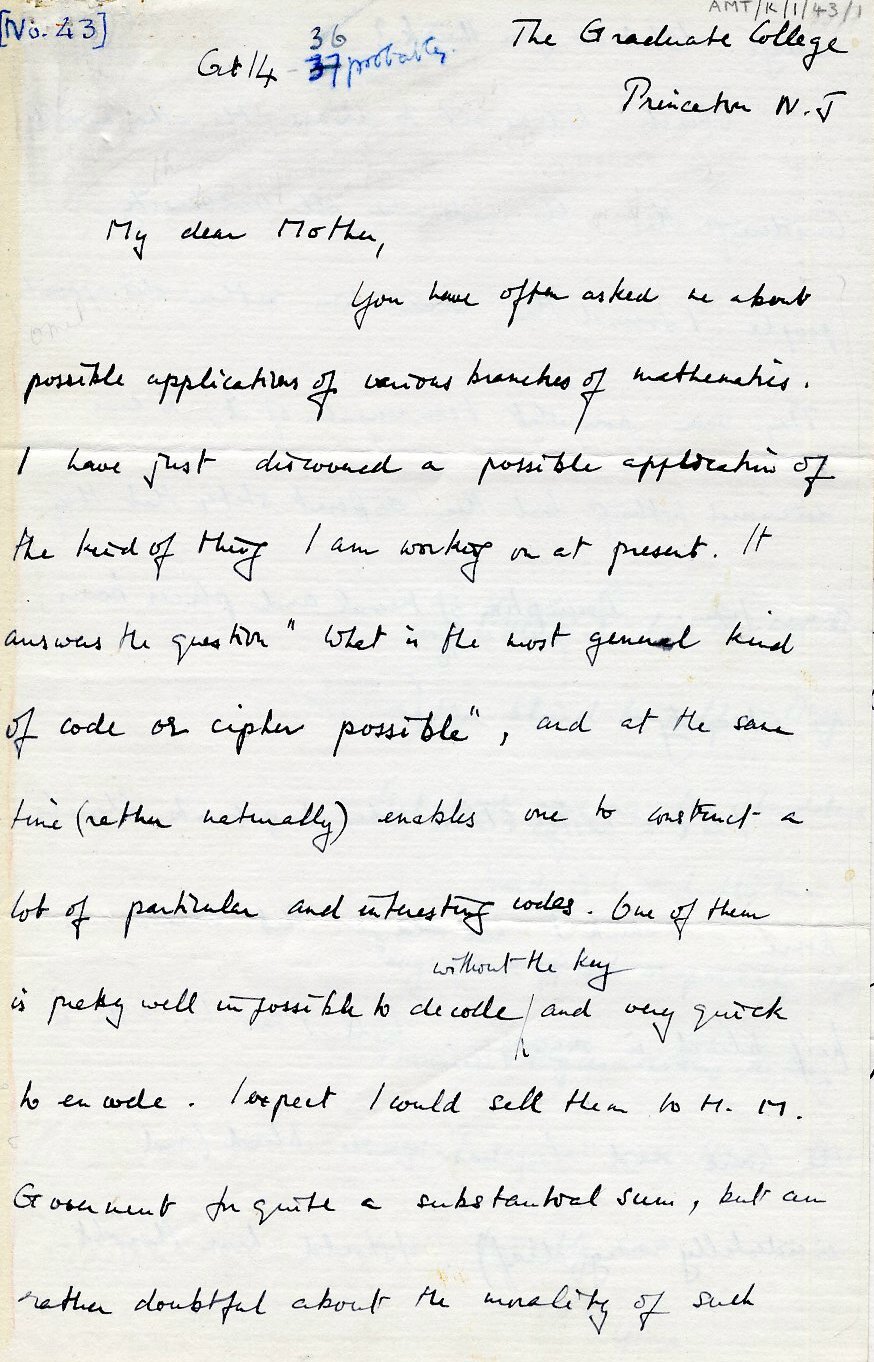 AMT/K/1/43/1
[No. 43]
The Graduate College
36
Oct 14 - 37 probably.
Princeton N.J
My dear Mother,
You have often asked me about
possible applications of various branches of mathematics.
I have just discovered a possible application of
the kind of thing I am working on at present. It
answers the question "What is the most general kind
of code or cipher possible", and at the same
time (rather naturally) enables one to construct a
lot of particular and interesting codes. One of them
without the key
is pretty well impossible to decode / and very quick
to encode. I expect I could sell them to H. M.
Government for quite a substantial sum, but am
rather doubtful about the morality of such